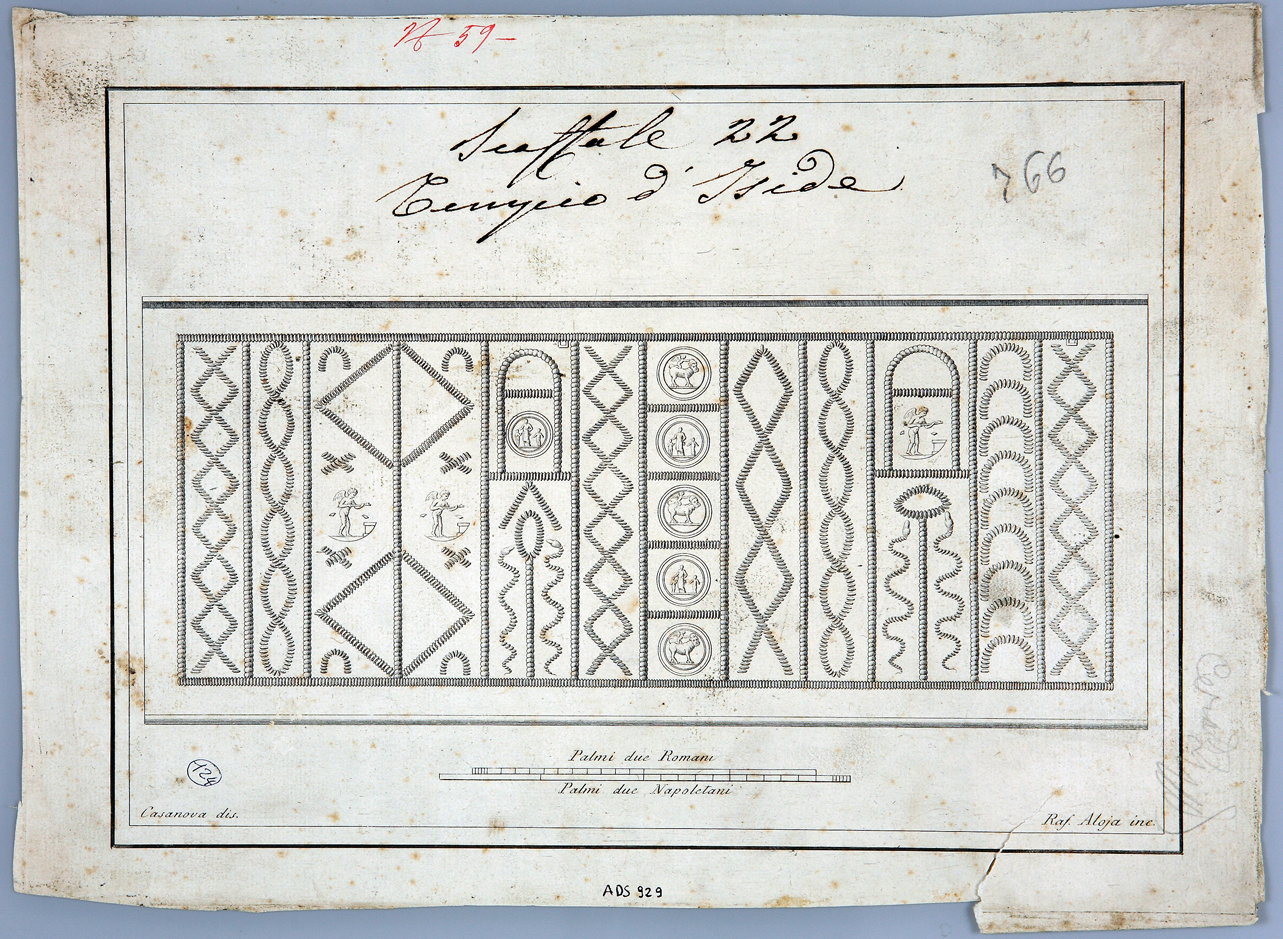 N 59-
Scaffale 22
Tempio d'Iside
766
Palmi due Romani
Palmi due Napoletani
124
Casanova dis.
Raf. Aloja inc.
ADS 929